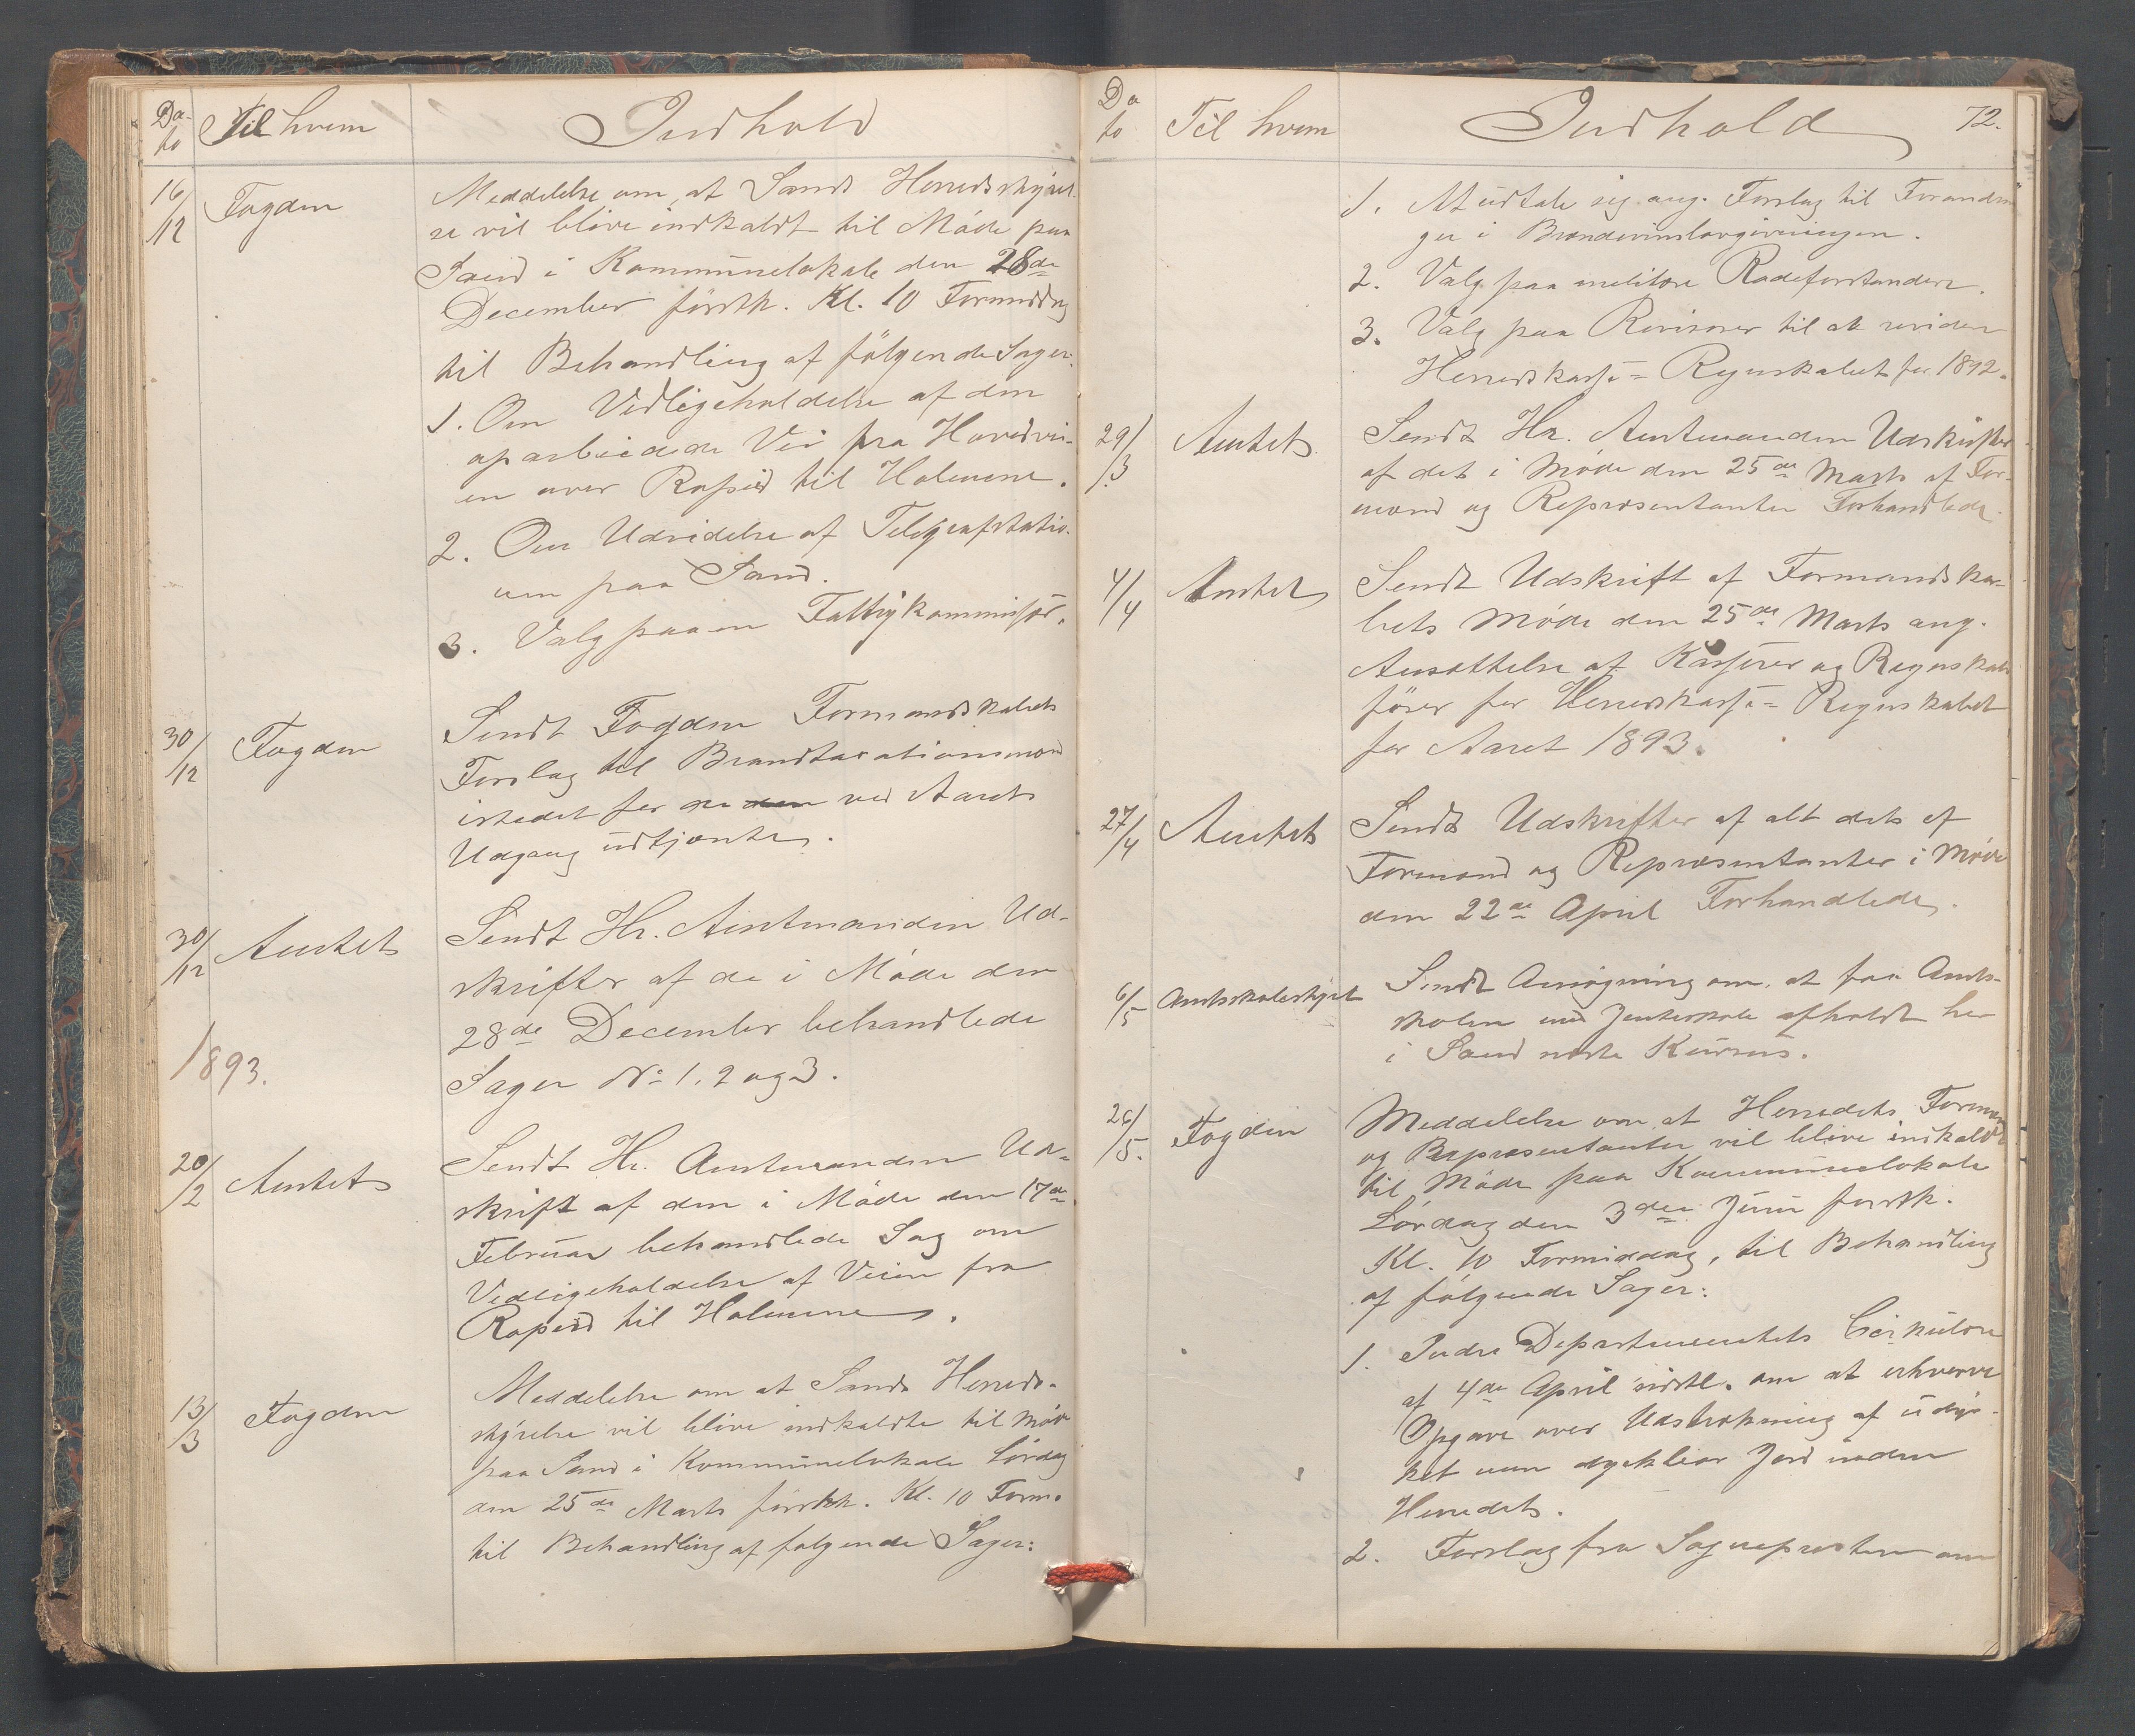 Da-
to
Til hvem
Indhold
16/12
Fogden
Meddelelse om, at Sands Herredsstyrel-
se vil blive indkaldt til Møde paa
Sand i Kommunelokale den 28de
December førstk. Kl. 10 Formiddag
til Behandling af følgende Sager:
1. Om Vedligeholdelse af den
oparbeidede Vei fra Hovedvei-
en over Rapeid til Holmene.
2. Om Udvidelse af Telegrafstatio-
nen paa Sand.
3. Valg paa en Fattigkommisær.
30/12
Fogden
Sendt Fogden Formandskabets
Forslag til Brandtaxationsmænd
istedet for de den ved Aarets
Udgang udtjente.
30/12
Amtet
Sendt Hr. Amtmanden Ud-
skrifter af de i Møde den
28de December behandlede
Sager No 1, 2 og 3.
1893.
20/2
Amtet
Sendt Hr. Amtmanden Ud-
skrift af den i Møde den 17de
Februar behandlede Sag om
Vedligeholdelse af Veien fra
Rapeid til Holmene.
13/3
Fogden
Meddelelse om at Sands Herreds-
styrelse vil blive indkaldte til Møde
paa Sand i Kommunelokale Lørdag
den 25de Marts førstk. Kl. 10 Form.
til Behandling af følgende Sager:
Da
to
Til hvem
Indhold
72.
1. At udtale sig ang. Forslag til Forandrin
ger i Brændevinslovgivningen.
2. Valg paa militære Rodeforstandere.
3. Valg paa Revisorer til at revidere
Herredskasse=Regnskabet for 1892.
29/3
Amtet
Sendt Hr. Amtmanden Udskrifter
af det i Møde den 25de Marts af For-
mænd og Repræsentanter Forhandlede.
4/4
Amtet
Sendt Udskrift af Formandska-
bets Møde den 25de Marts ang.
Ansættelse af Kasserer og Regnskabs
fører for Herredskasse=Regnskabet
for Aaret 1893.
27/4
Amtet
Sendt Udskrifter af alt det af
Formænd og Repræsentanter i Møde
den 22de April Forhandlede.
6/5
Amtsskolestyret
Sendt Ansøgning om, at faa Amts-
skolen med Jenteskole afholdt her
i Sand næste Kursus.
26/5.
Fogden
Meddelelse om at Herredets Formænd
og Repræsentanter vil blive indkaldt
til Møde paa Kommunelokale
Lørdag den 3die Juni førstk.
Kl. 10 Formiddag, til Behandling
af følgende Sager:
1. Indre Departementets Cirkulære
af 4de April sidstl. om at erhverve
Opgave over Udstrækning af udyr-
ket men dyrkbar Jord inden
Herredet.
2. Forslag fra Sognepresten om